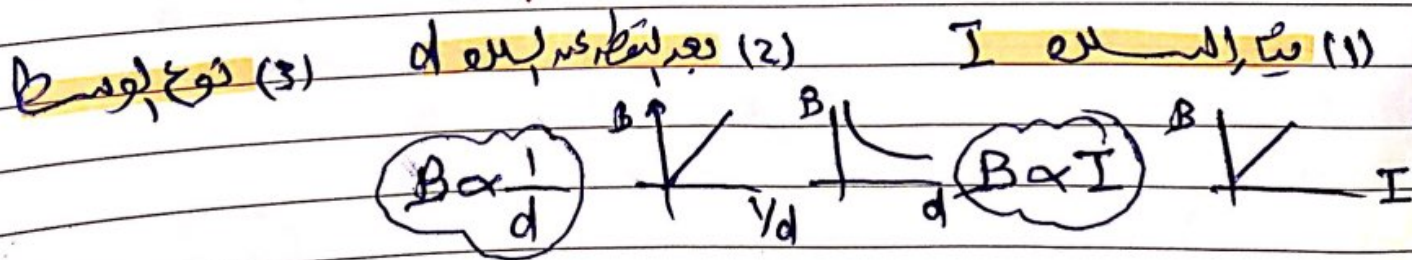 (1) تيار السلك I (2) بعد النقطة عن السلك d (3) نوع الوسط
B I B ∝ I B d B 1/d B ∝ 1/d